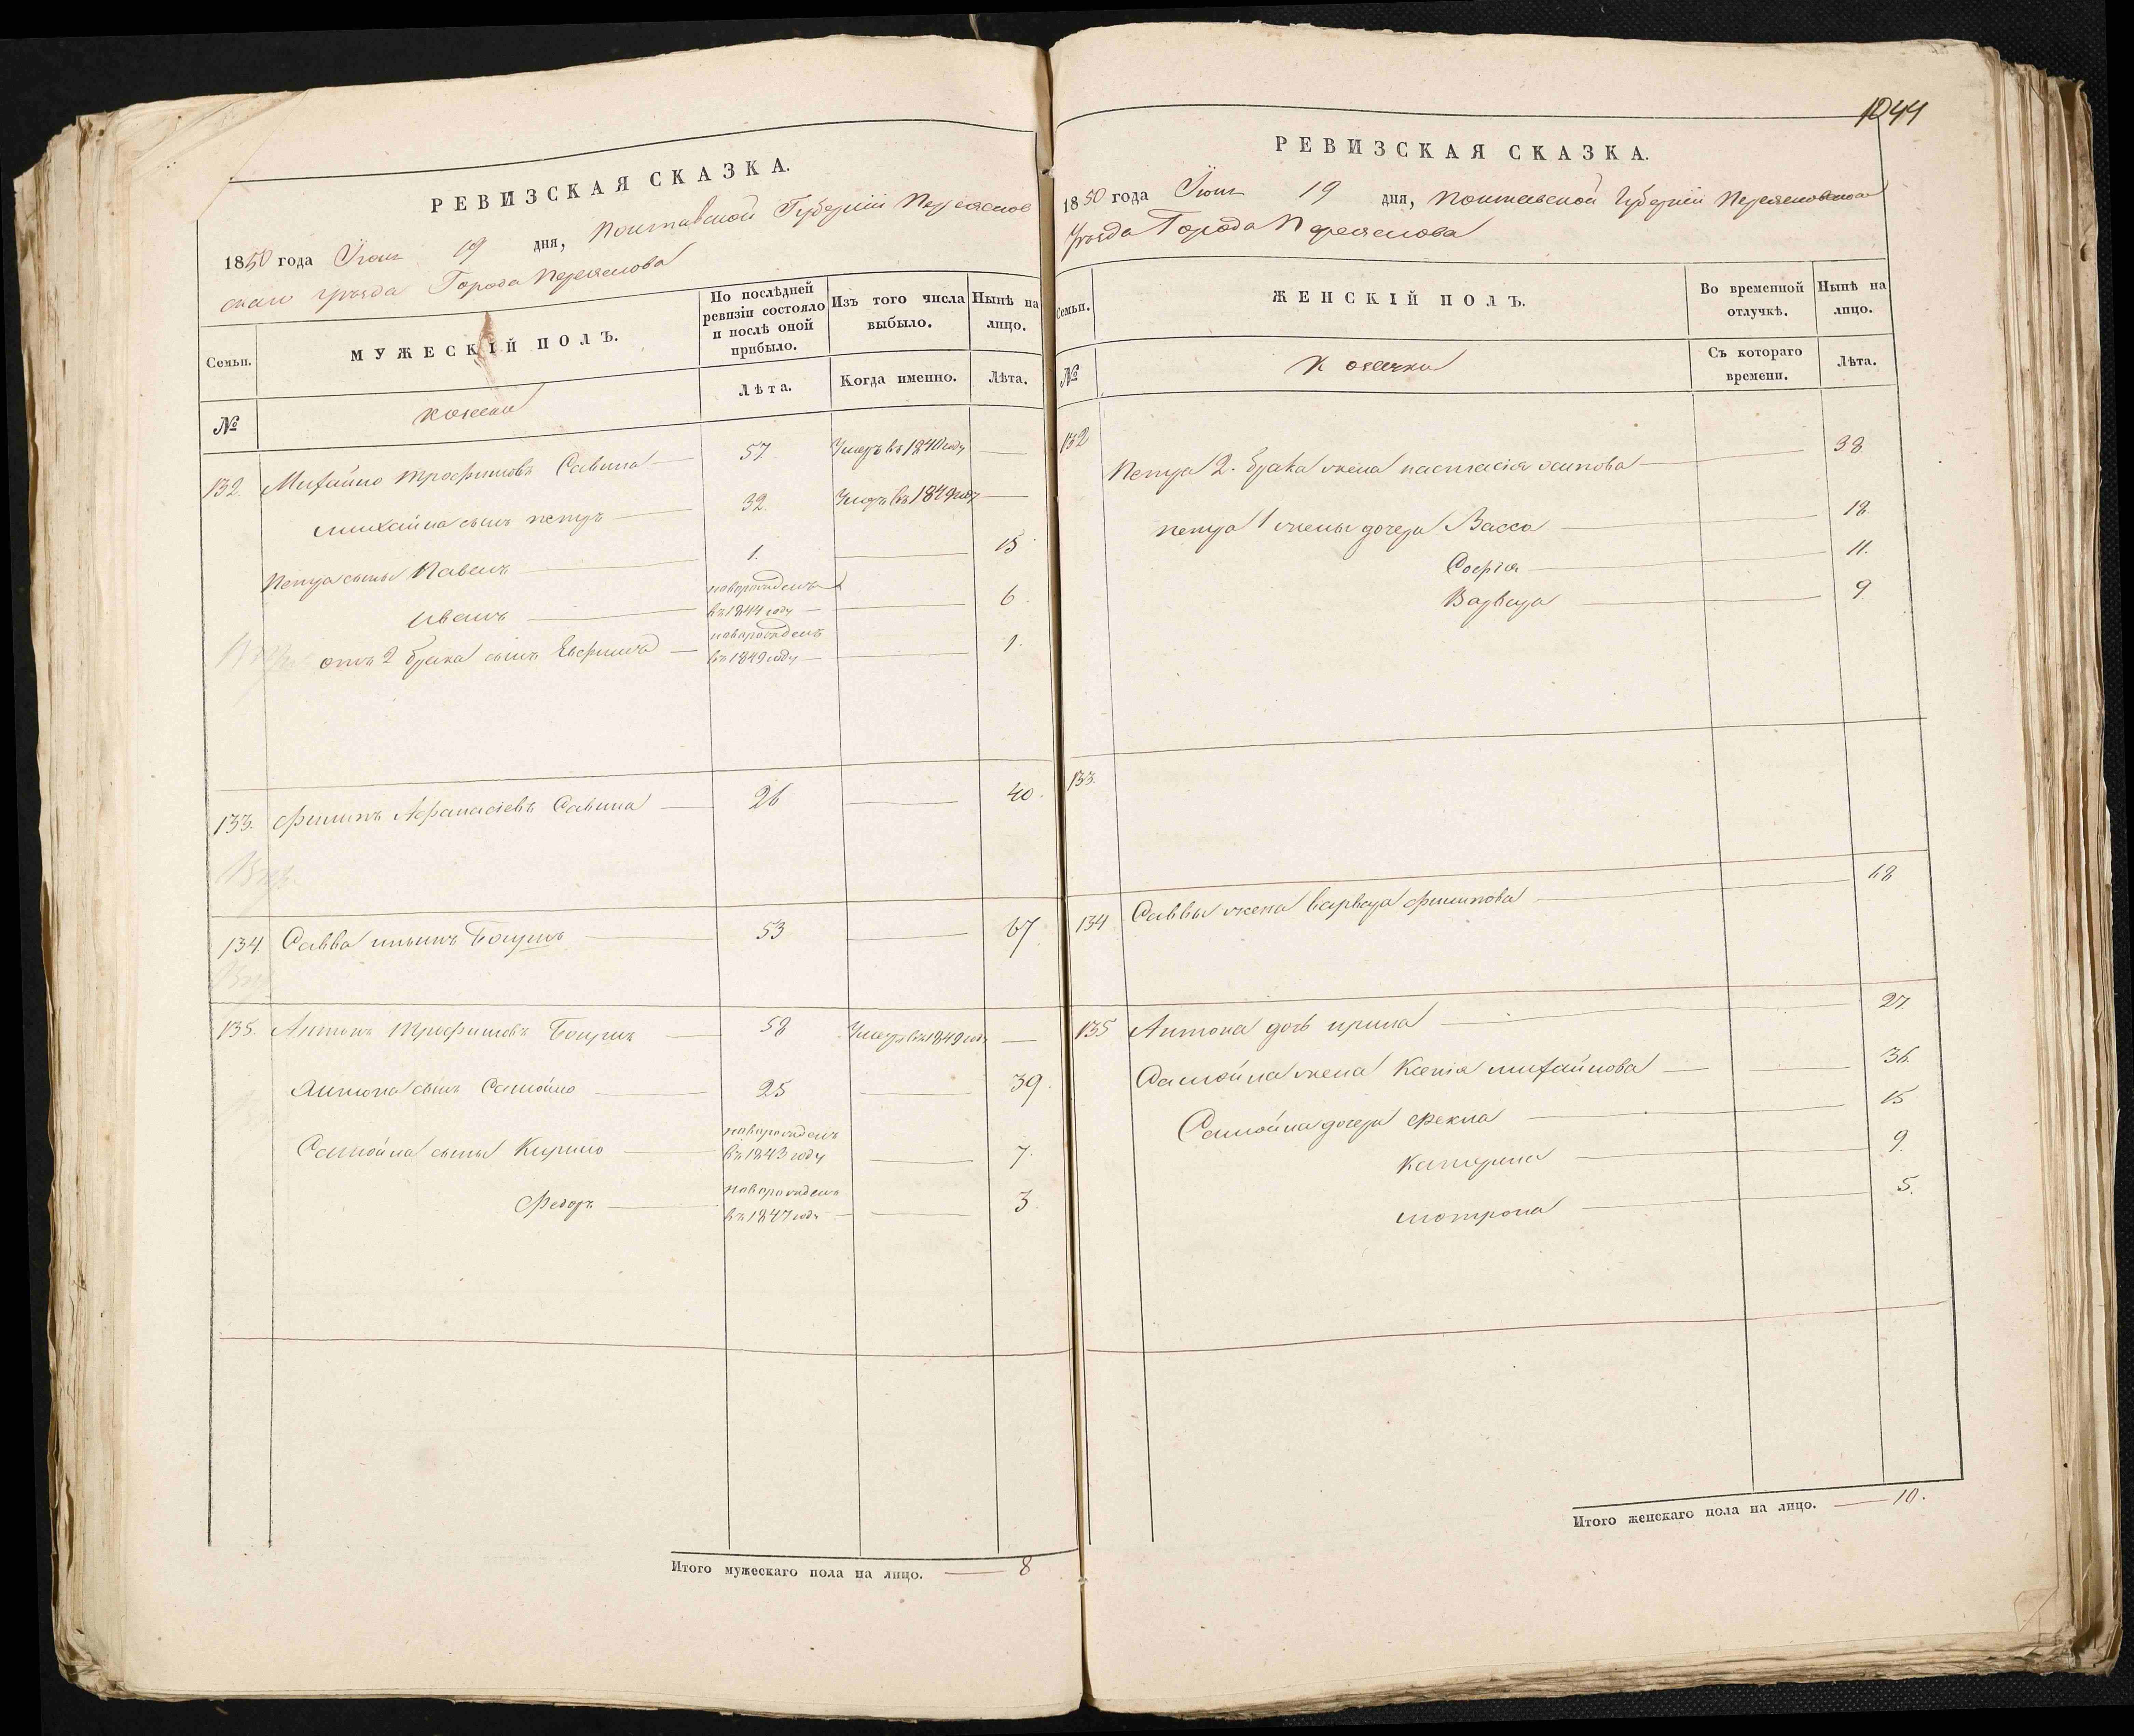 РЕВИЗСКАЯ СКАЗКА.
1850 года Іюня 19 дня, Полтавской Губерніи Переяслов
скаго уѣзда Города Переяслова
Семьи. МУЖЕСКІЙ ПОЛЪ. По послѣдней ревизіи состояло и послѣ оной прибыло. Изъ того числа выбыло. Нынѣ на лицо.
№ козаки Лѣта. Когда именно. Лѣта.
132. Михайло Трофимовъ Савина 57 Умеръ въ 1840 году
Михайла сынъ Петръ 32. Умеръ въ 1849 году
Петра сыны Павелъ 1. 15
Иванъ новорожденъ въ 1844 году 6
отъ 2 брака сынъ новорожденъ въ 1849 году 1.
133. Филипъ Афанасіевъ Савина 26 40.
134. Савва Ильинъ 53 67
135. Антонъ Трофимовъ 58 Умеръ въ 1849 году
Антона сынъ Самойло 25 39.
Самойла сыны Кирило новорожденъ въ 1843 году 7.
Федоръ новорожденъ въ 1847 году 3
Итого мужескаго пола на лицо. 8
1044
РЕВИЗСКАЯ СКАЗКА.
1850 года Іюня 19 дня, Полтавской Губерніи Переясловскаго
Уѣзда Города Переяслова
Семьи. ЖЕНСКІЙ ПОЛЪ. Во временной отлучкѣ. Нынѣ на лицо.
№ Козачки Съ котораго времени. Лѣта.
132 Петра 2. брака жена Настасія Осипова 38
Петра 1 жены дочери Васса 18
Софія 11.
Варвара 9
133.
134 Саввы жена Варвара Филипова 68
135 Антона дочь Ирина 27.
Самойла жена Ксенія Михайлова 36
Самойла дочери Фекла 15
Катерина 9.
Мотрона 5.
Итого женскаго пола на лицо. 10.